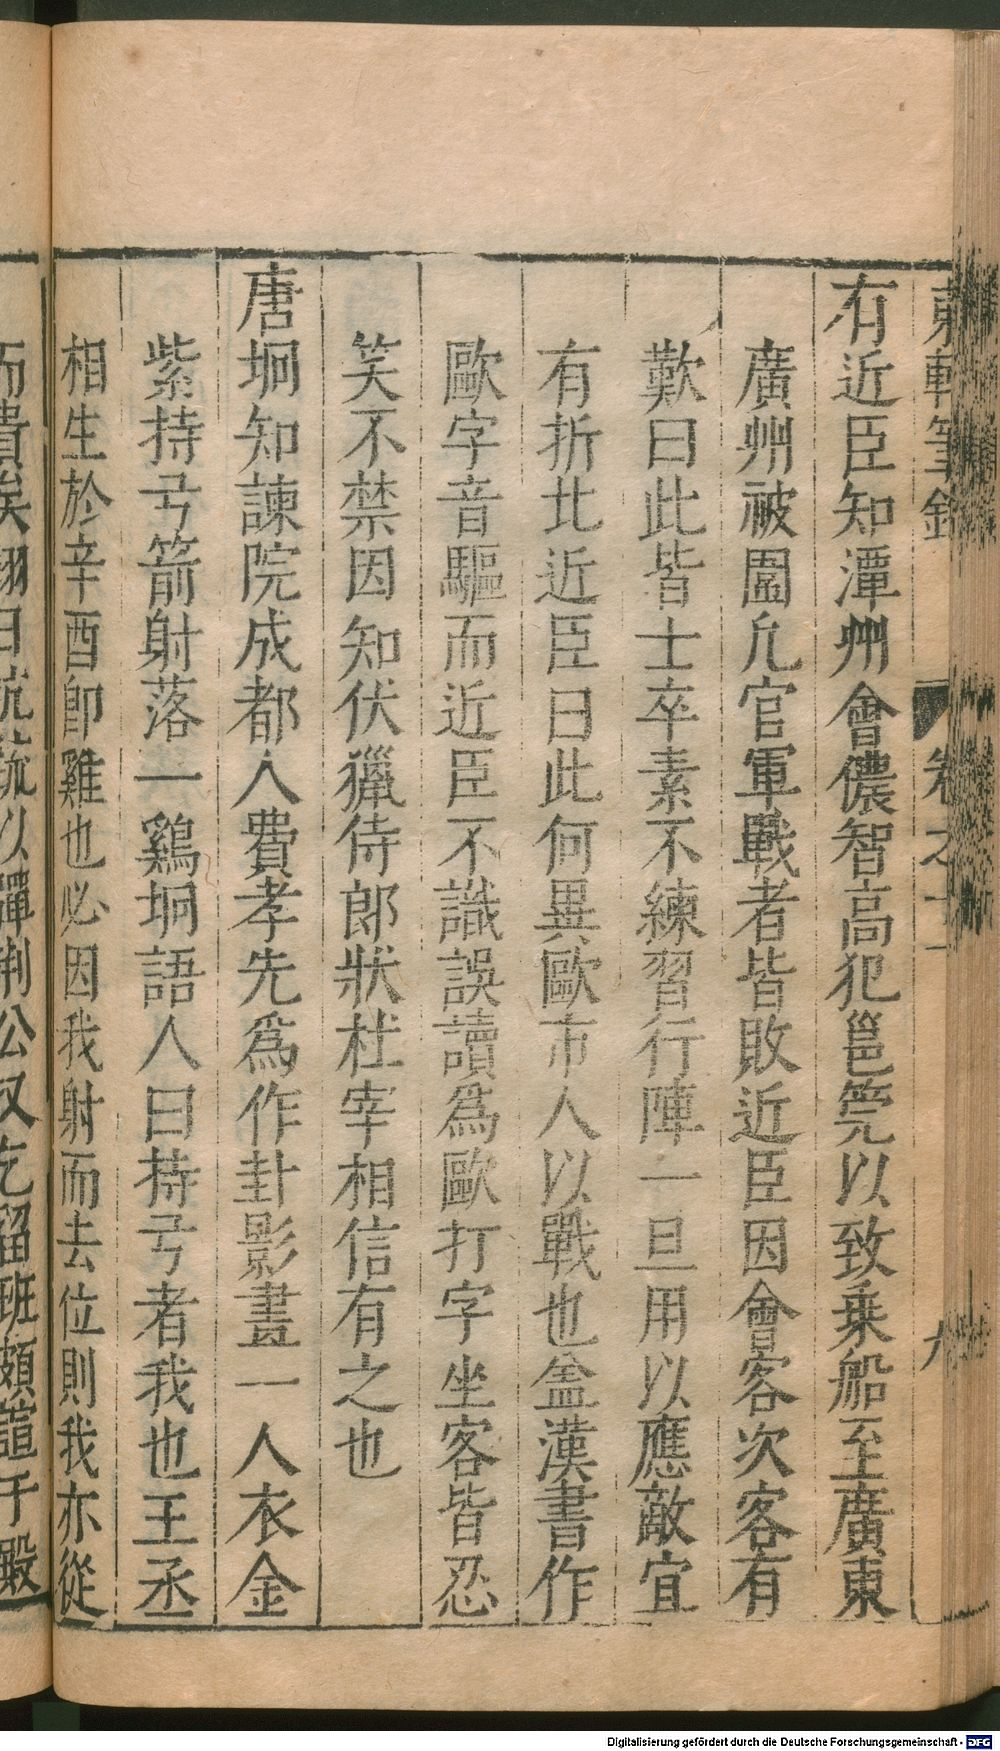 東軒筆錄
卷之十一
九
有近臣知潭州會儂智高犯邕筦以致乗船至廣東
廣州被圍凢官軍戰者皆敗近臣因會客次客有
歎曰此皆士卒素不練習行陣一旦用以應敵宜
有折北近臣曰此何異歐市人以戰也盖漢書作
歐字音驅而近臣不識誤讀爲歐打字坐客皆忍
笑不禁因知伏獵侍郎狀杜宰相信有之也
唐坰知諫院成都人費孝先爲作卦影畫一人衣金
紫持弓箭射落一鷄坰語人曰持弓者我也王丞
相生於辛酉卽雞也必因我射而去位則我亦從
而貴矣翊日抗疏以彈荆公又乞留班頗諠于殿
Digitalisierung gefördert durch die Deutsche Forschungsgemeinschaft - DFG